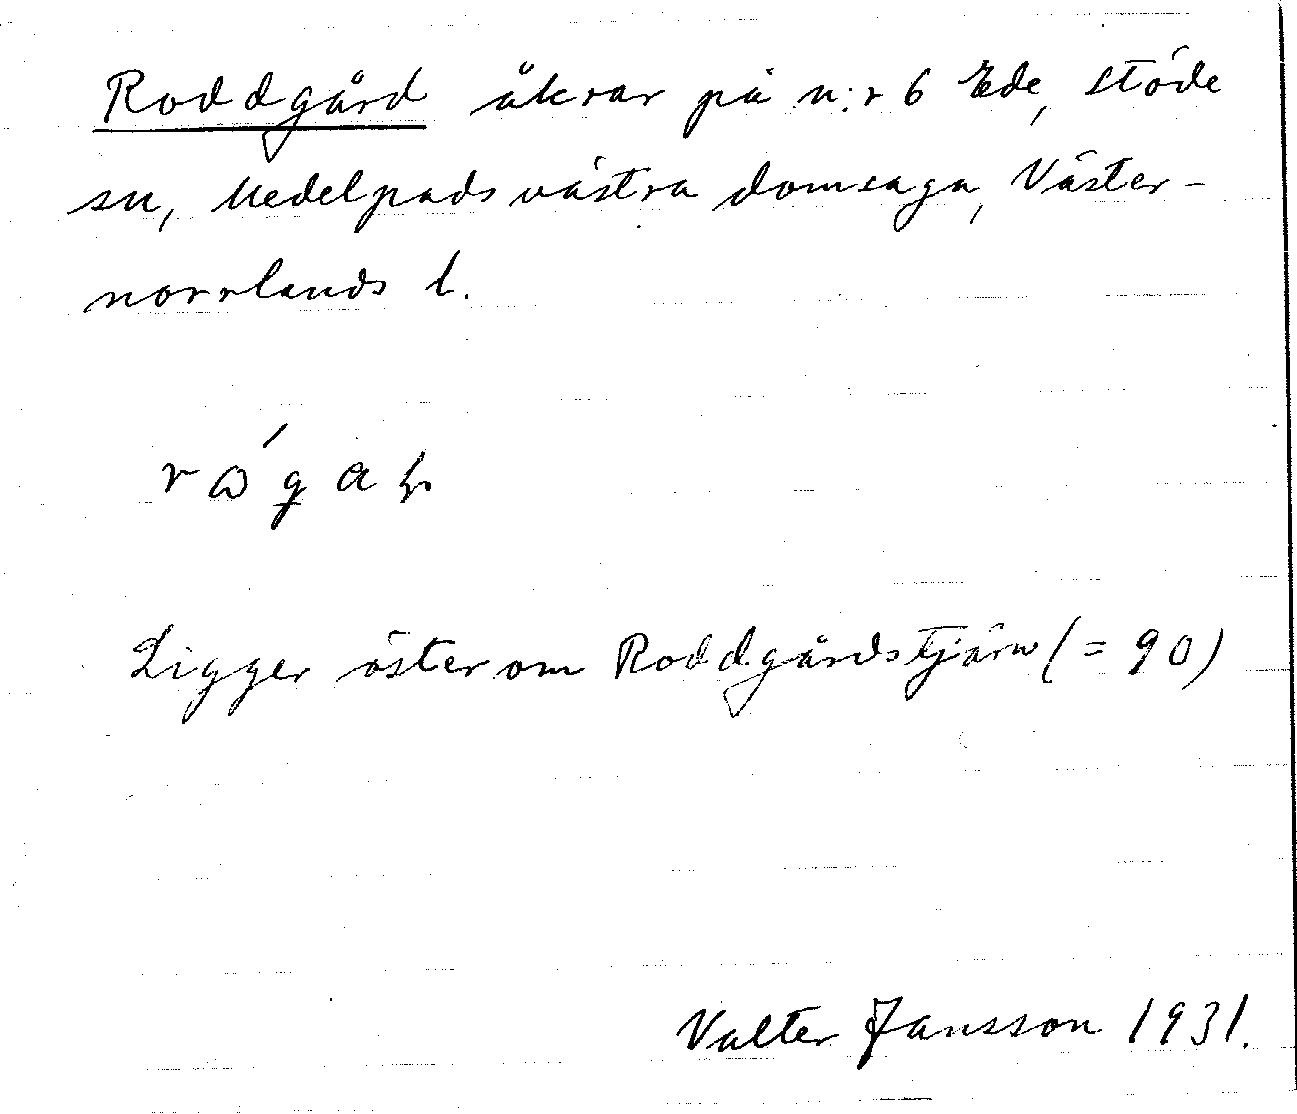 Roddgård åkrar på n:r 6 Ede, Stöde
sn, Medelpads västra domsaga, Väster-
norrlands l.
Ligger öster om Roddgårdstjärn (= 90)
Valter Jansson 1931.